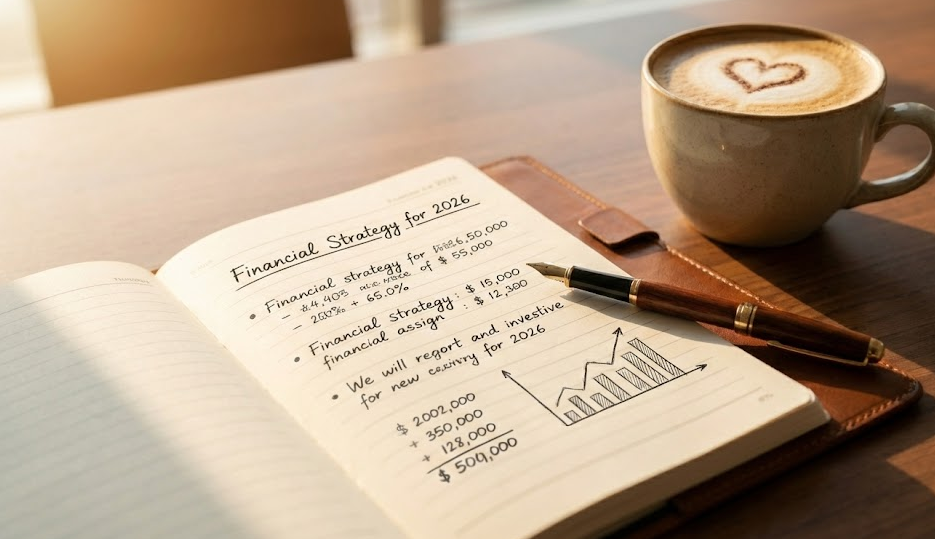 Financial Strategy for 2026
• Financial strategy for 6,50,000
- $4,403 of $ 55,000
- + 65.0%
• Financial Strategy : $ 15,000
financial assign : $ 12,300
• We will regort and investive
for new for 2026
$ 2002,000
+ 350,000
+ 128,000
$ 504,000